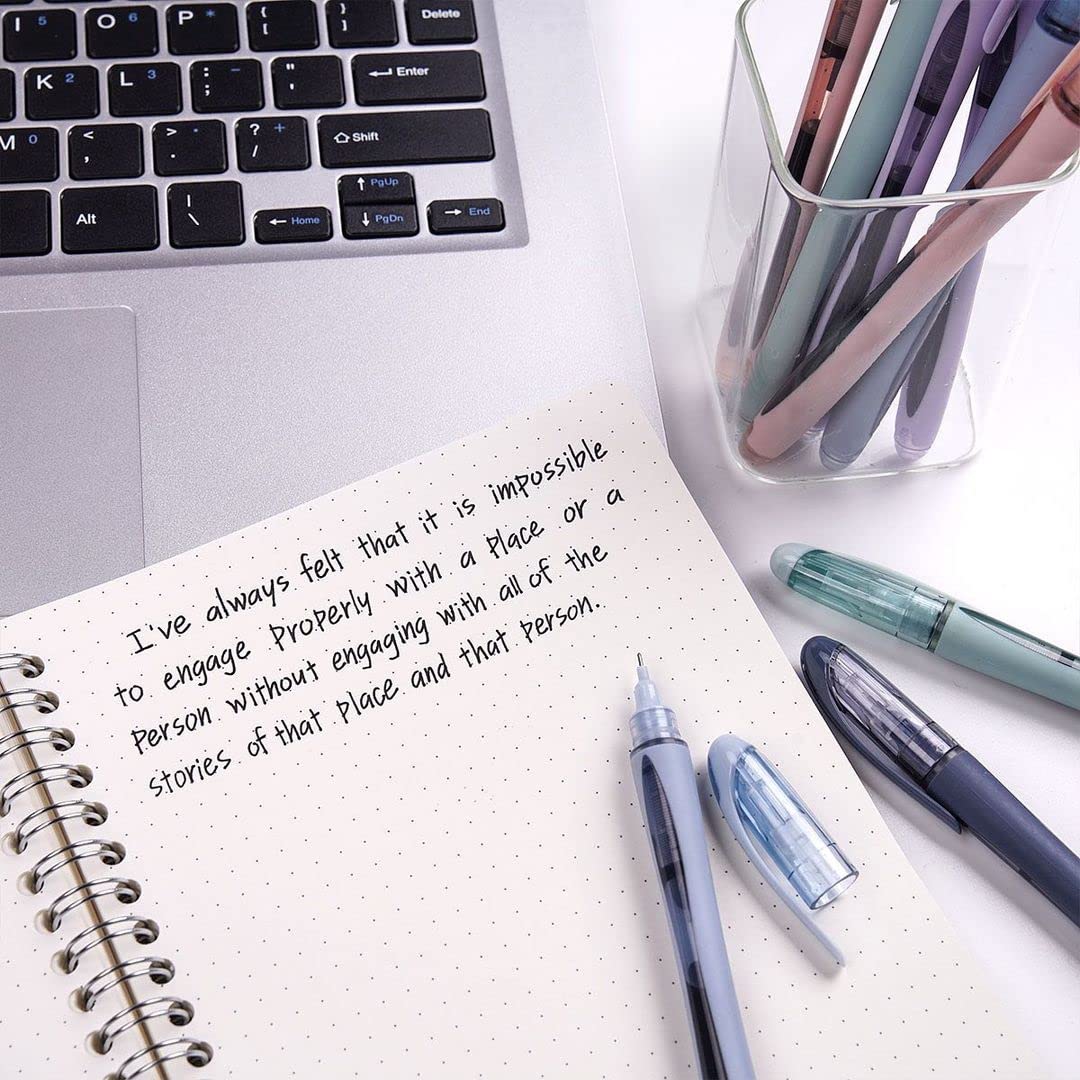 I 5 O 6 P * { [ } ] Delete
K 2 L 3 : ; - " ' Enter
M 0 < , > . • ? / + Shift
Alt | \ Home PgUp PgDn End
I've always felt that it is impossible
to engage properly with a place or a
person without engaging with all of the
stories of that place and that person.